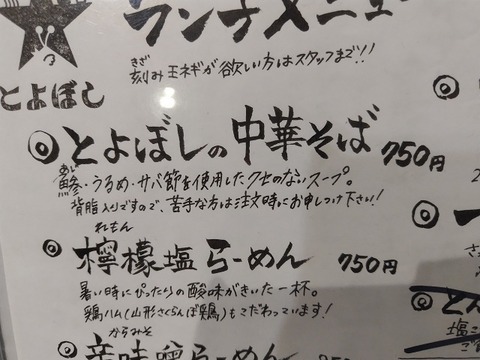 ランチメニュー
きざ
刻み玉ネギが欲しい方はスタッフまで!!
とよぼし
◎とよぼしの中華そば 750円
あじ
鯵・うるめ・サバ節を使用したクセのないスープ。
背脂入りですので、苦手な方は注文時にお申しつけ下さい!
れもん
◎檸檬塩らーめん 750円
暑い時にぴったりの酸味がきいた一杯。
鶏ハム(山形さくらんぼ鶏)もこだわっています!
からみそ
辛味噌らーめん